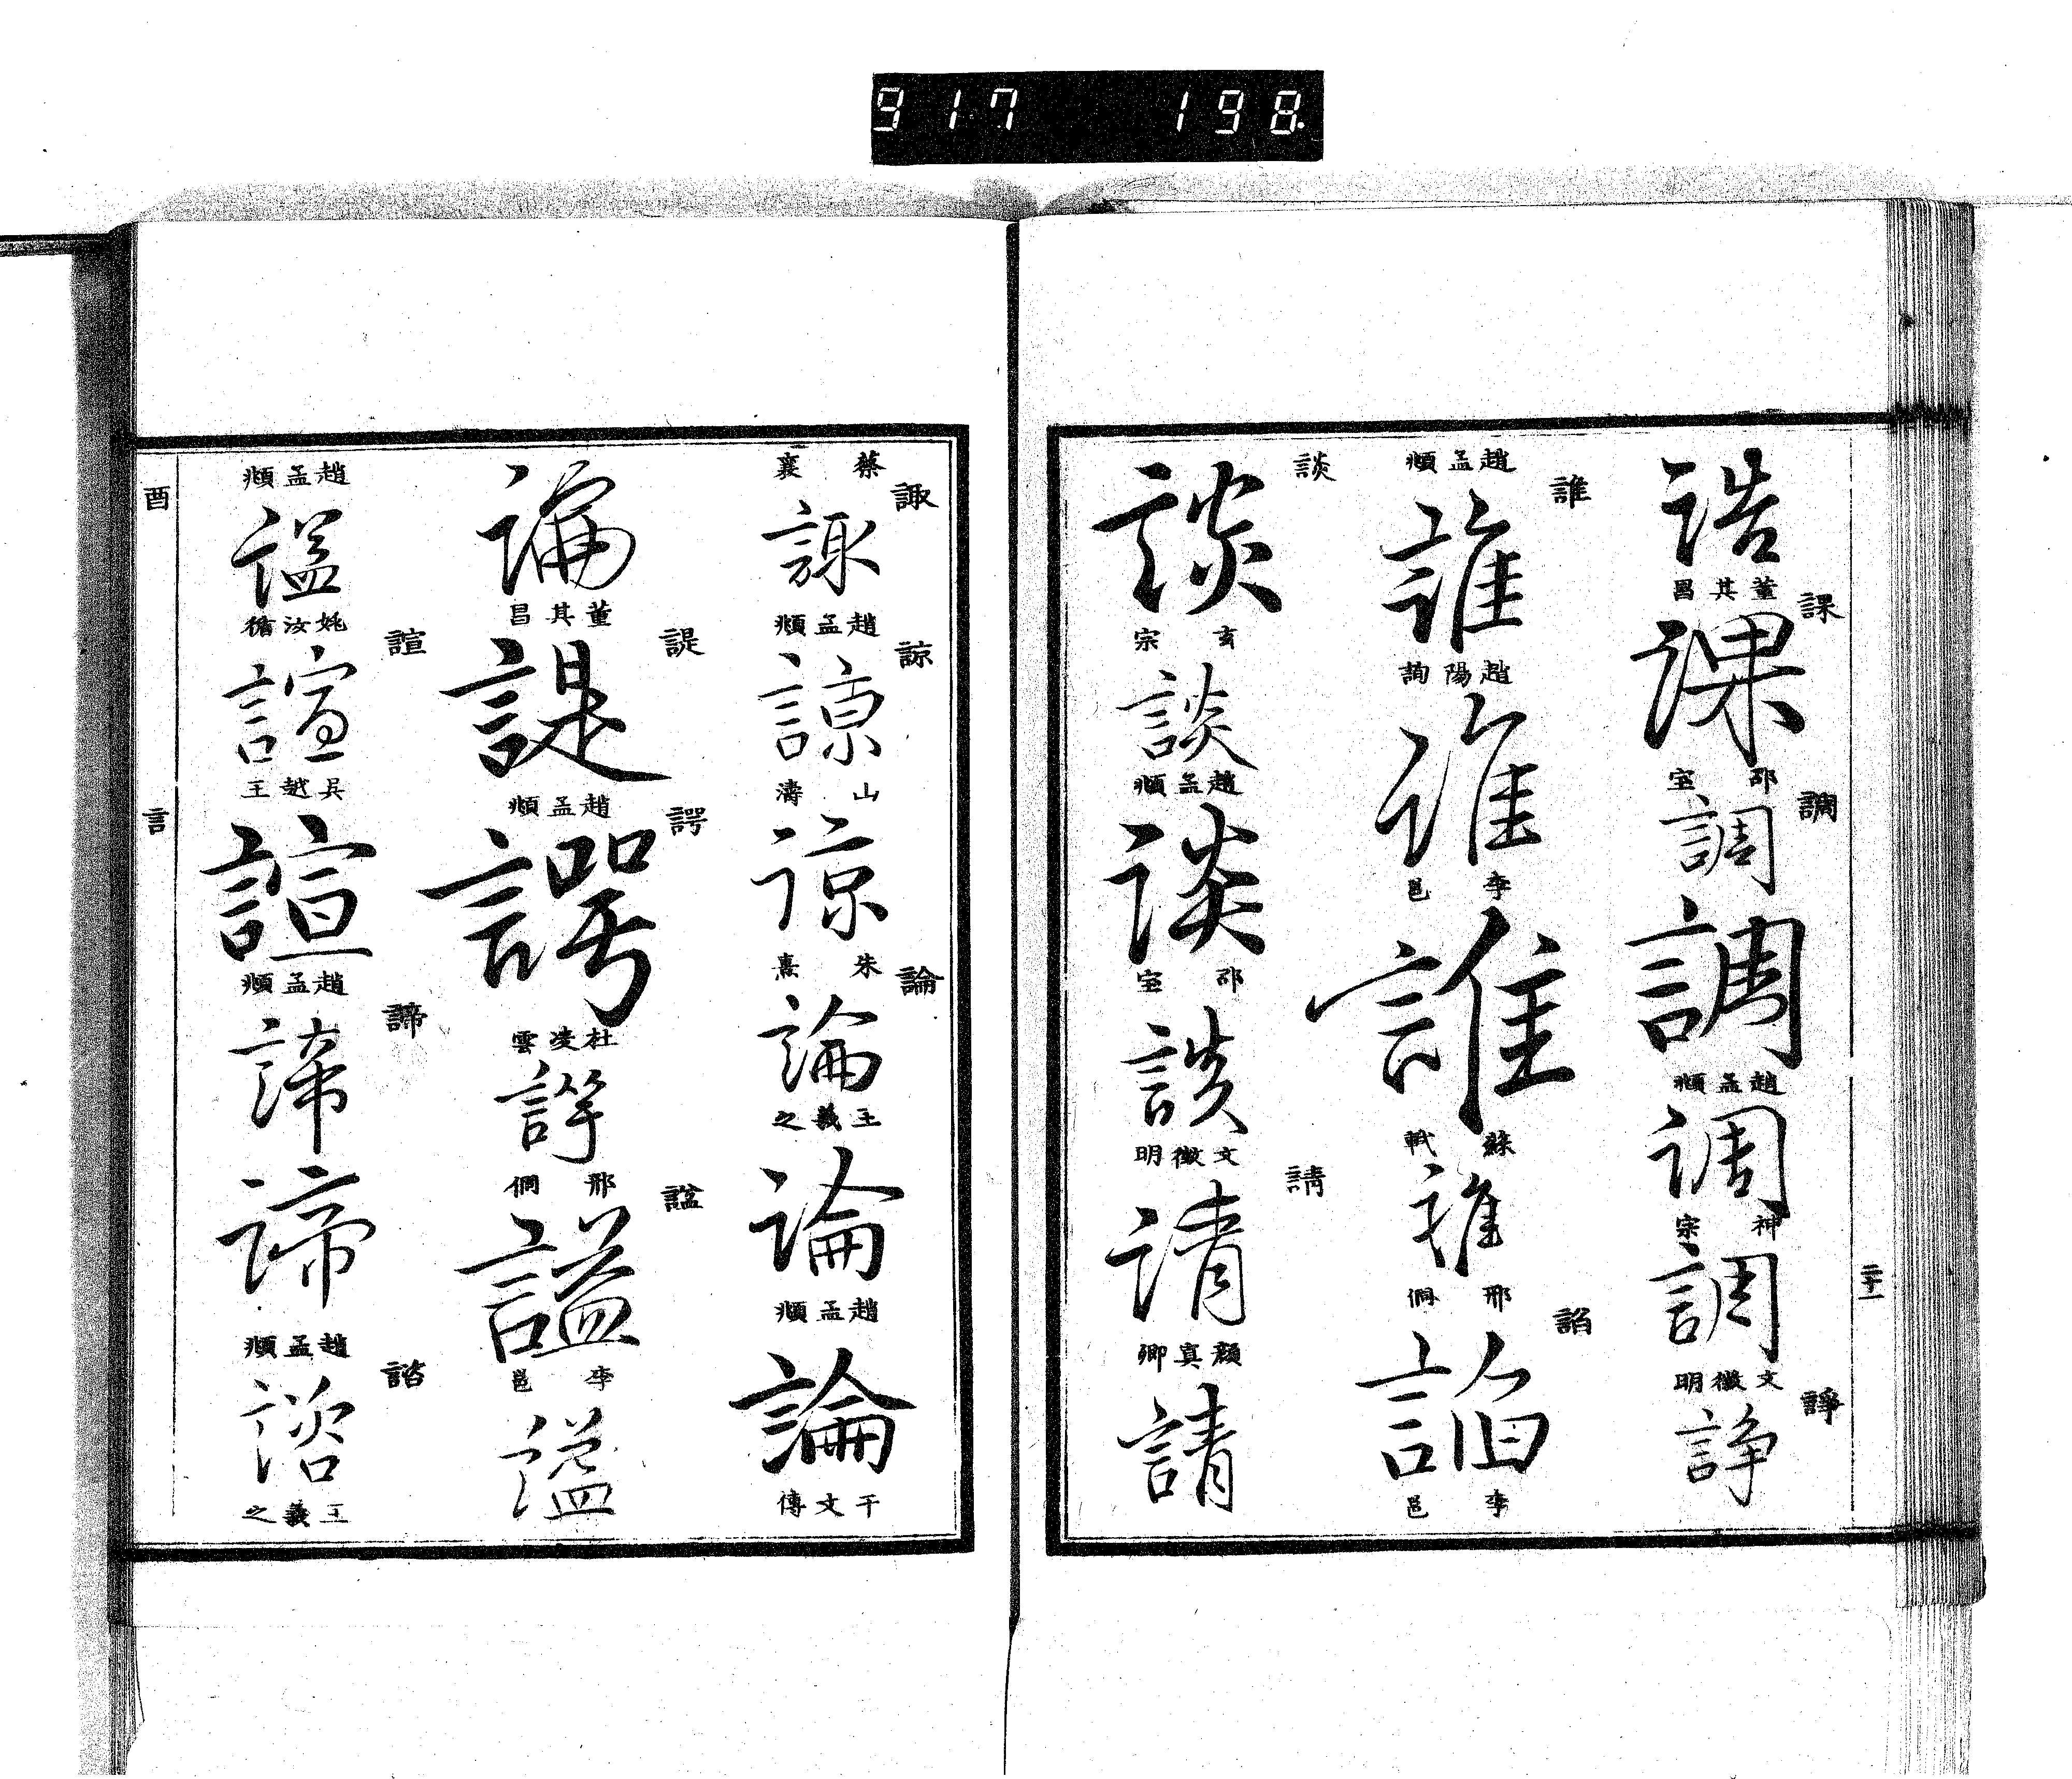 917 198
二十一
誥
董其昌
課
課
邵宝
調
調
調
趙孟頫
調
神宗
調
文徴明
諍
諍
趙孟頫
誰
誰
趙陽詢
誰
李邕
誰
蘇軾
誰
邢侗
諂
諂
李邕
談
談
玄宗
談
趙孟頫
談
邵宝
談
文徴明
請
請
顔真卿
請
蔡襄
諏
諏
趙孟頫
諒
諒
山濤
諒
朱熹
論
論
王羲之
論
趙孟頫
論
干文傳
論
董其昌
諟
諟
趙孟頫
諤
諤
杜凌雲
諤
邢侗
謚
謚
李邕
謚
趙孟頫
謚
姚汝循
諠
諠
吳越王
諠
趙孟頫
諦
諦
諦
趙孟頫
諮
諮
王羲之
酉
言